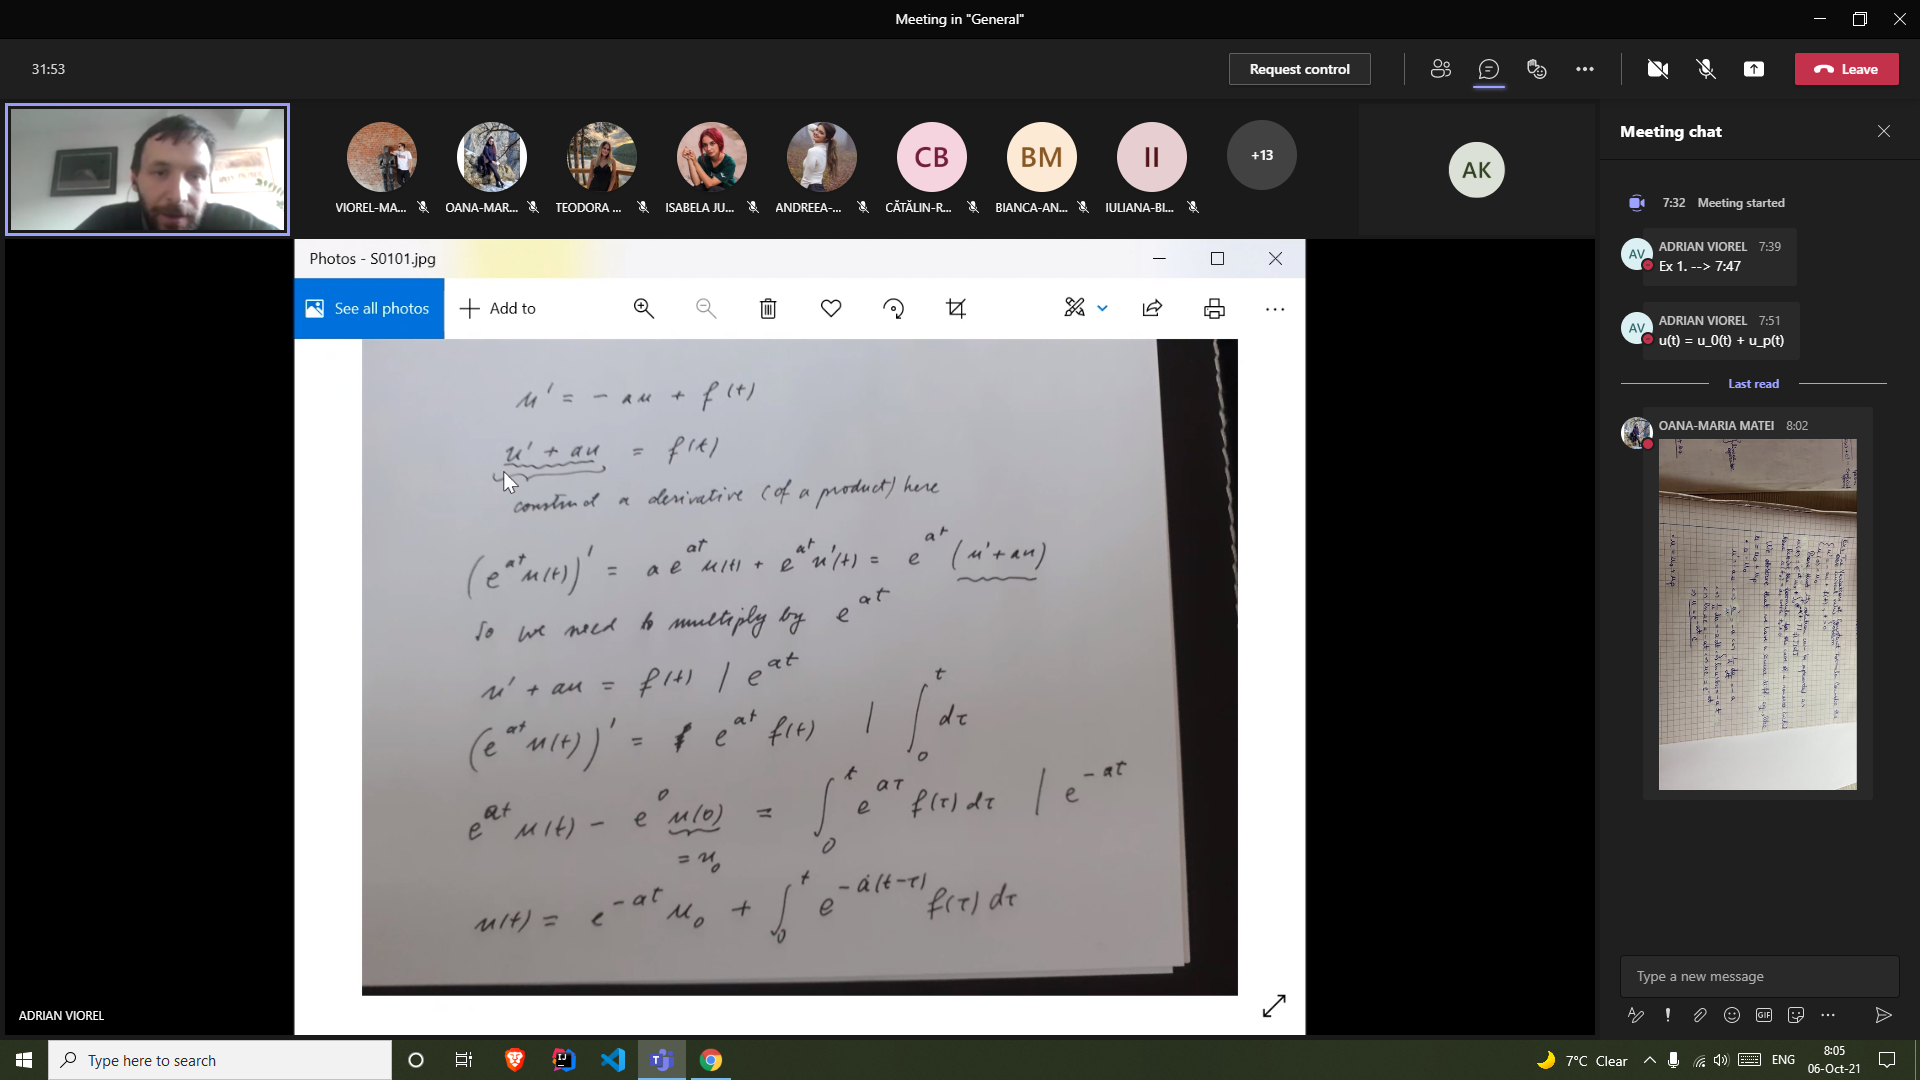 Meeting in "General"
31:53
Request control
Leave
VIOREL-MA...
OANA-MAR...
TEODORA ...
ISABELA JU...
ANDREEA-...
CB
CĂTĂLIN-R...
BM
BIANCA-AN...
II
IULIANA-BI...
+13
AK
Photos - S0101.jpg
See all photos
Add to
u' = - au + f(t)
u' + au = f(t)
construct a derivative (of a product) here
(e^{at} u(t))' = a e^{at} u(t) + e^{at} u'(t) = e^{at} (u' + au)
So we need to multiply by e^{at}
u' + au = f(t) | e^{at}
(e^{at} u(t))' = e^{at} f(t) | ∫_0^t dτ
e^{at} u(t) - e^0 u(0) = ∫_0^t e^{aτ} f(τ) dτ | e^{-at}
= u_0
u(t) = e^{-at} u_0 + ∫_0^t e^{-a(t-τ)} f(τ) dτ
ADRIAN VIOREL
Meeting chat
7:32 Meeting started
AV
ADRIAN VIOREL 7:39
Ex 1. --> 7:47
AV
ADRIAN VIOREL 7:51
u(t) = u_0(t) + u_p(t)
Last read
OANA-MARIA MATEI 8:02
Type a new message
GIF
Type here to search
7°C Clear
ENG
8:05
06-Oct-21